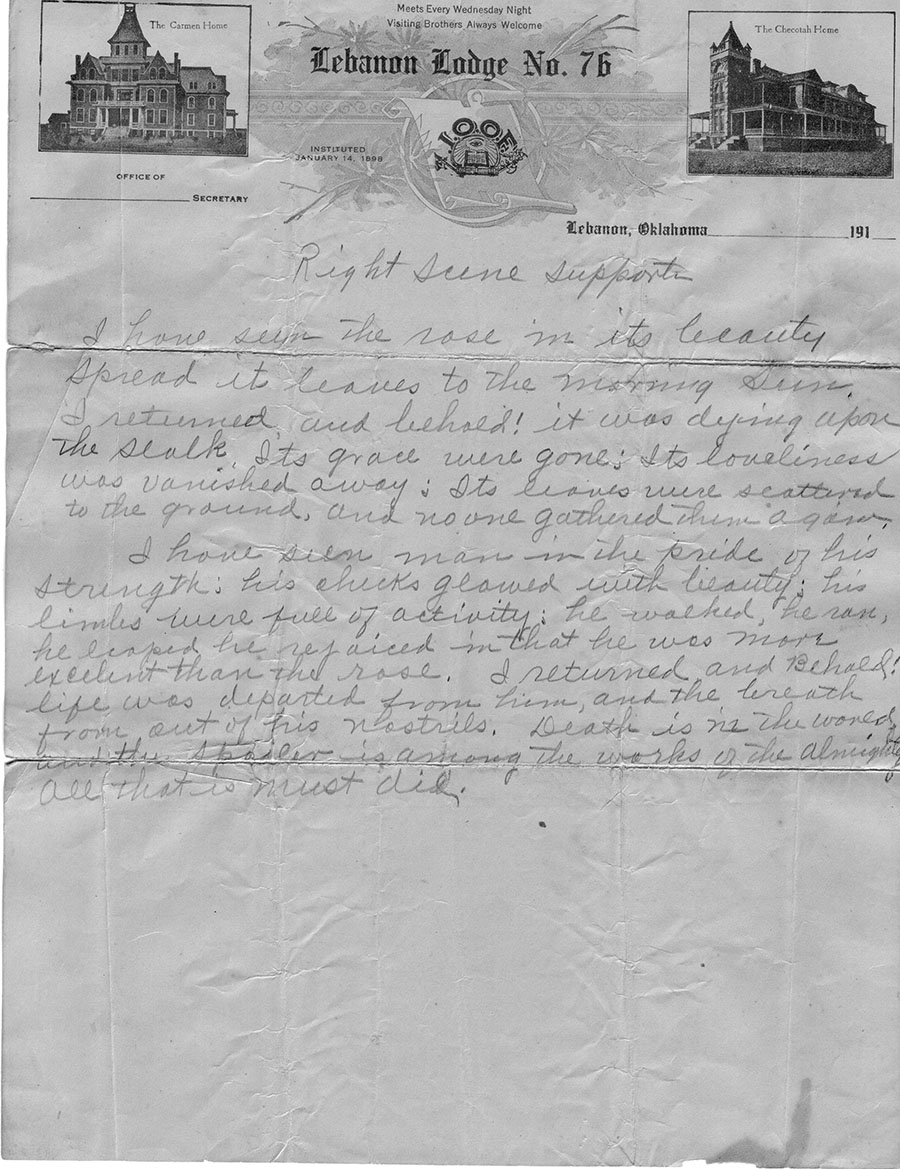 Meets Every Wednesday Night
Visiting Brothers Always Welcome
The Carmen Home
The Checotah Home
Lebanon Lodge No. 76
I.O.O.F.
INSTITUTED
JANUARY 14, 1898
OFFICE OF
SECRETARY
Lebanon, Oklahoma 191
Right Scene Supporter
I have seen the rose in its beauty
Spread it leaves to the morning Sun.
I returned, and behold! it was dying upon
the stalk, Its grace were gone; Its loveliness
was vanished away; Its leaves were scattered
to the ground, and no one gathered them again.
I have seen man in the pride of his
strength; his cheeks glowed with beauty; his
limbs were full of activity; he walked, he ran,
he leaped he rejoiced in that he was more
excelent than the rose. I returned, and Behold!
life was departed from him, and the breath
from out of his nostrils. Death is in the world,
and the spoiler is among the works of the almighty
all that is must die.